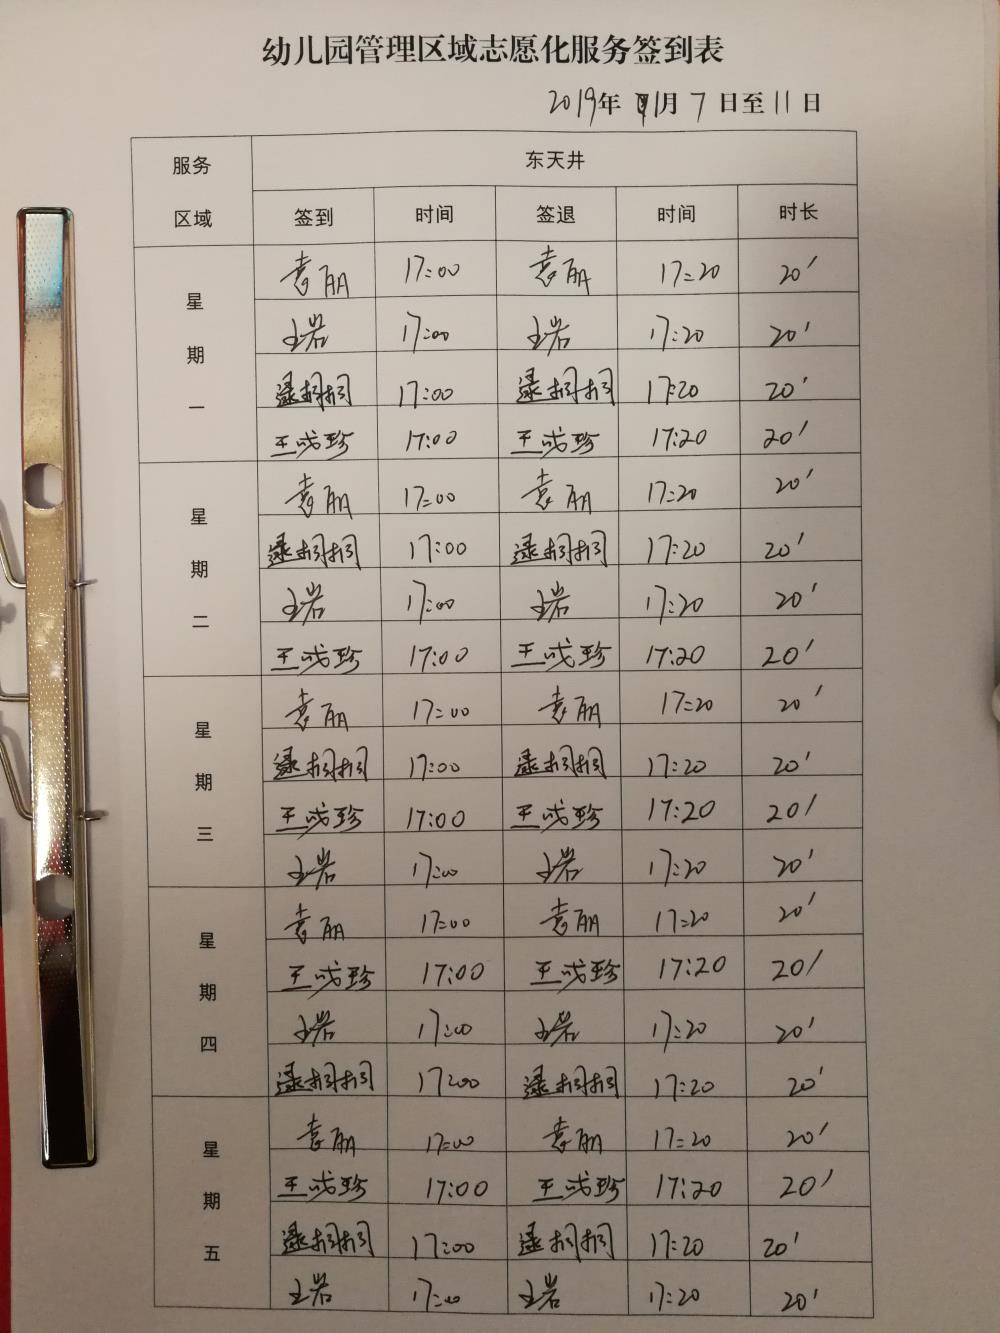 幼儿园管理区域志愿化服务签到表
2019年 11月 7 日至 11 日
服务区域 东天井
签到 时间 签退 时间 时长
星期一
袁丽 17:00 袁丽 17:20 20'
王岩 17:00 王岩 17:20 20'
逯桐桐 17:00 逯桐桐 17:20 20'
王成珍 17:00 王成珍 17:20 20'
星期二
袁丽 17:00 袁丽 17:20 20'
逯桐桐 17:00 逯桐桐 17:20 20'
王岩 17:00 王岩 17:20 20'
王成珍 17:00 王成珍 17:20 20'
星期三
袁丽 17:00 袁丽 17:20 20'
逯桐桐 17:00 逯桐桐 17:20 20'
王成珍 17:00 王成珍 17:20 20'
王岩 17:00 王岩 17:20 20'
星期四
袁丽 17:00 袁丽 17:20 20'
王成珍 17:00 王成珍 17:20 20'
王岩 17:00 王岩 17:20 20'
逯桐桐 17:00 逯桐桐 17:20 20'
星期五
袁丽 17:00 袁丽 17:20 20'
王成珍 17:00 王成珍 17:20 20'
逯桐桐 17:00 逯桐桐 17:20 20'
王岩 17:00 王岩 17:20 20'